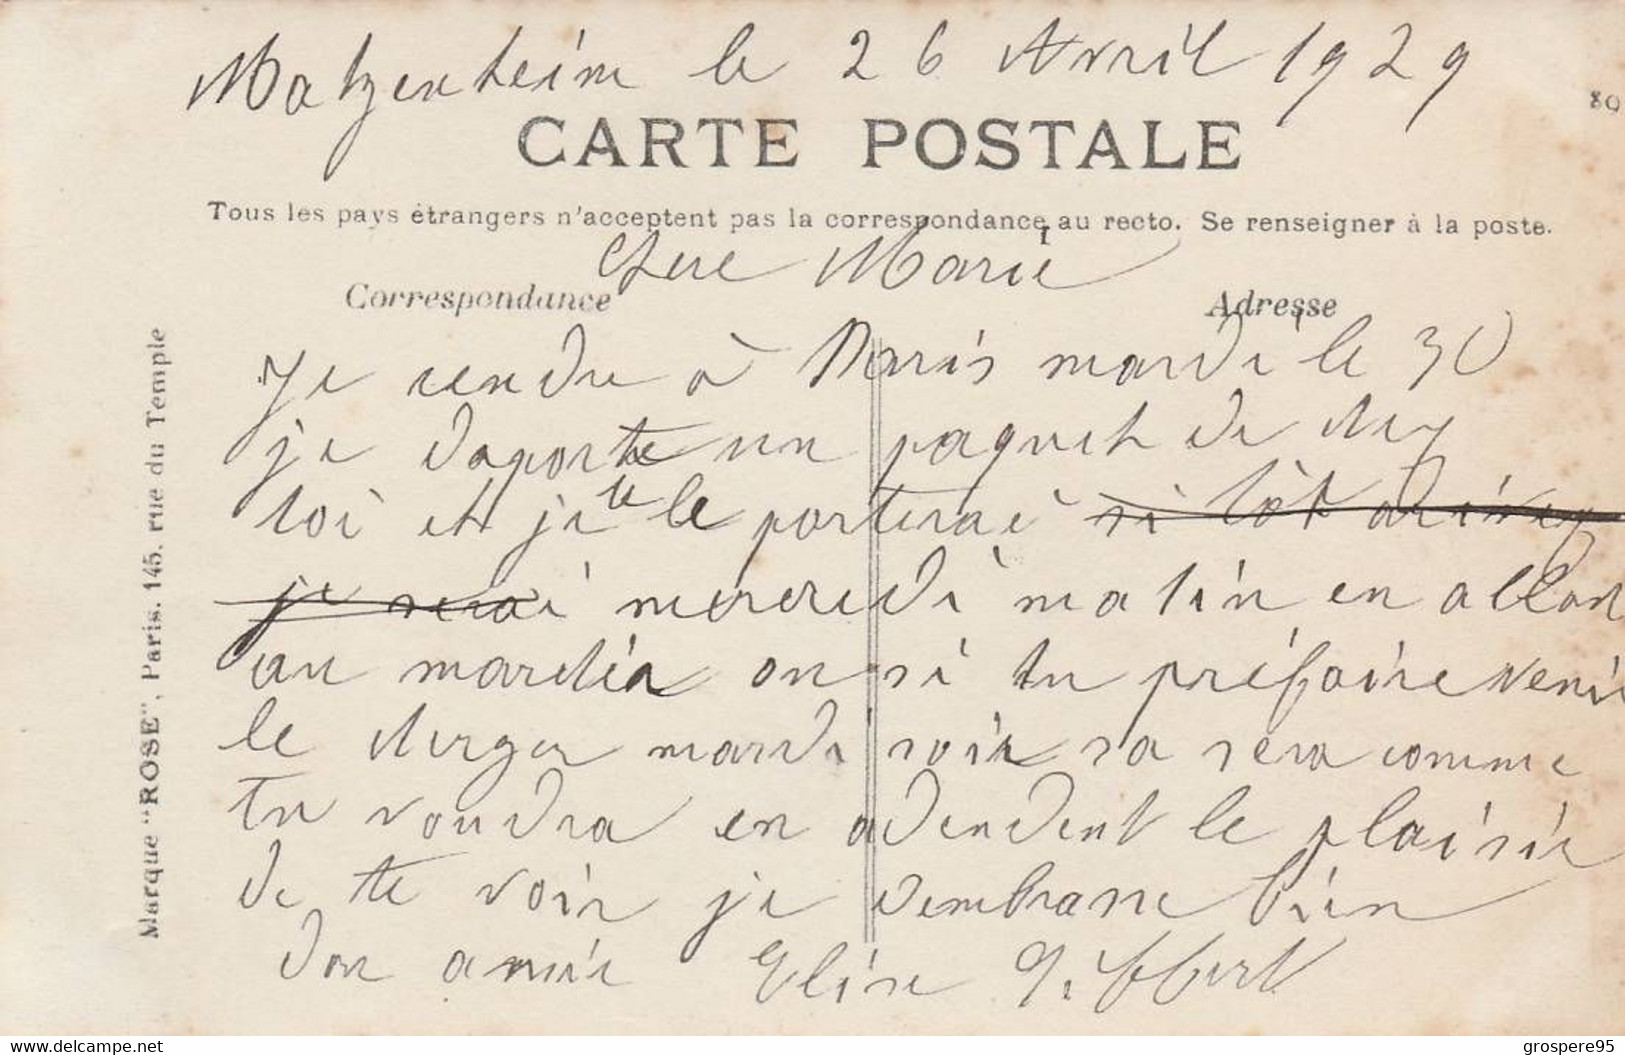 Matzenheim le 26 Avril 1929
80
CARTE POSTALE
Tous les pays étrangers n'acceptent pas la correspondance au recto. Se renseigner à la poste.
Chere Marie
Correspondance
Adresse
Je rendre à Paris mardi le 30
je daporte un paquet de chez
toi et je te le porterai si tôt arivez
je serai mercredi matin en allant
au on si tu préfaire venir
le cherger mardi soir sa sera comme
tu voudra en adendent le plaisir
de te voir je dembrasse bien
don amie Elise
Marque "ROSE", Paris. 145, rue du Temple
delcampe.net
grospere95